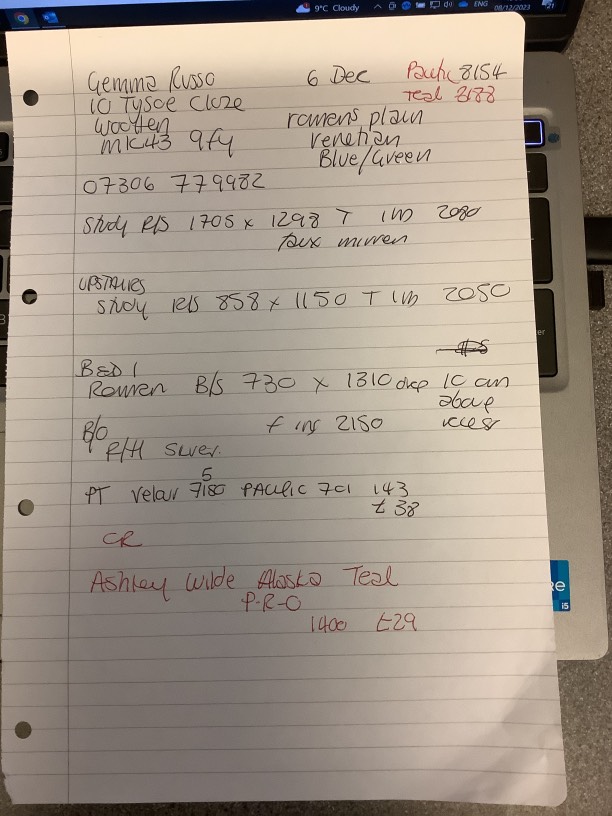 9°C Cloudy
ENG
08/12/2023
Gemma Russo
6 Dec
Pacific 8154
Teal 8188
10 Tysoe Close
wootten
mk43 9fy
romens plain
venetian
Blue/Green
07306 779982
Study R/S 1705 x 1298 T 1m 2080
UPSTAIRS
study R/S 858 x 1150 T 1m 2050
BED 1
Romen B/S 730 x 1310 drop 10 cm
above
B/O
R/H Silver.
2150
recess
5
PT velour 7180 PACIFIC 701 143
£38
CR
Ashley Wilde Alaska Teal
P-R-O
1400 £29
i5